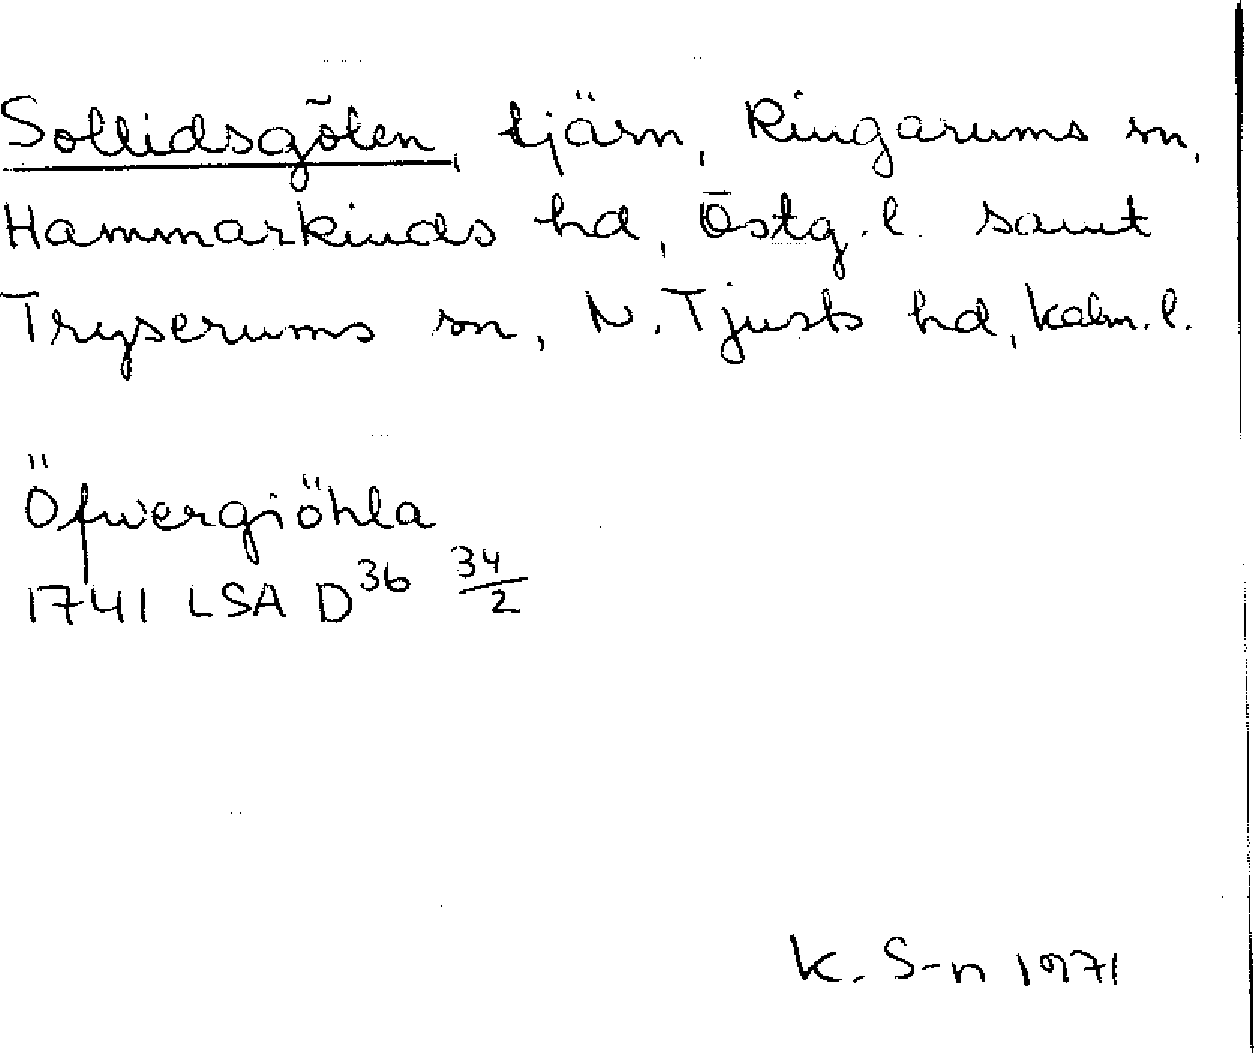 Sollidsgölen, tjärn, Ringarums sn,
Hammarkinds hd, Östg. l. samt
Tryserums sn, N. Tjusts hd, Kalm. l.
Öfwergiöhla
1741 LSA D36 34/2
K. S-n 1971